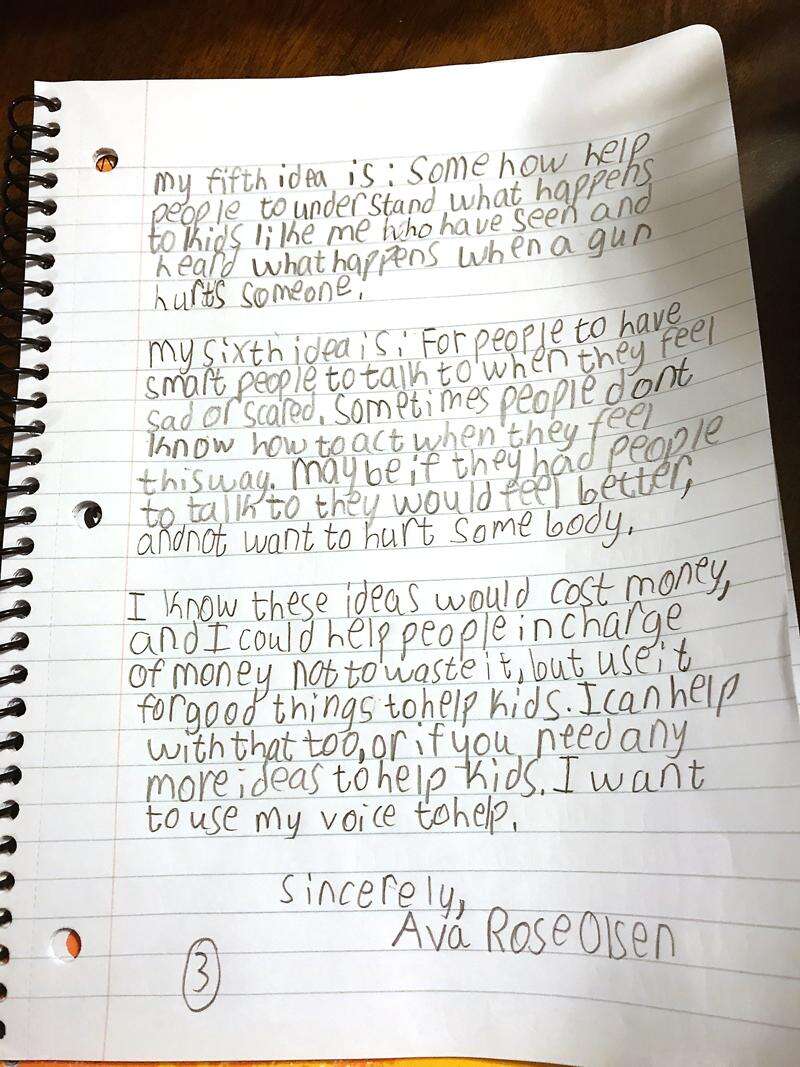 my fifth idea is: Some how help
people to understand what happens
to kids like me who have seen and
heard what happens when a gun
hurts someone.
my sixth idea is: For people to have
smart people to talk to when they feel
sad or scared. Sometimes people dont
know how to act when they feel
this way. Maybe if they had people
to talk to they would feel better,
and not want to hurt some body.
I know these ideas would cost money,
and I could help people in charge
of money not to waste it, but use it
for good things to help kids. I can help
with that too, or if you need any
more ideas to help kids. I want
to use my voice to help.
Sincerely,
Ava Rose Olsen
3